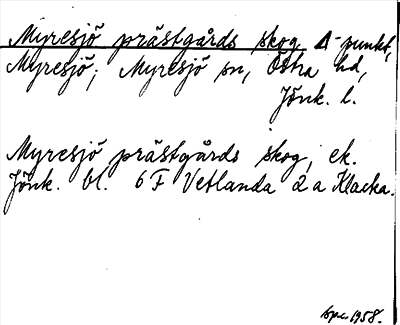 Myresjö prästgårds skog, Δ-punkt,
Myresjö; Myresjö sn, Östra hd,
Jönk. l.
Myresjö prästgårds skog, ek.
Jönk. bl. 6 F Vetlanda 2 a Klacka.
1958.